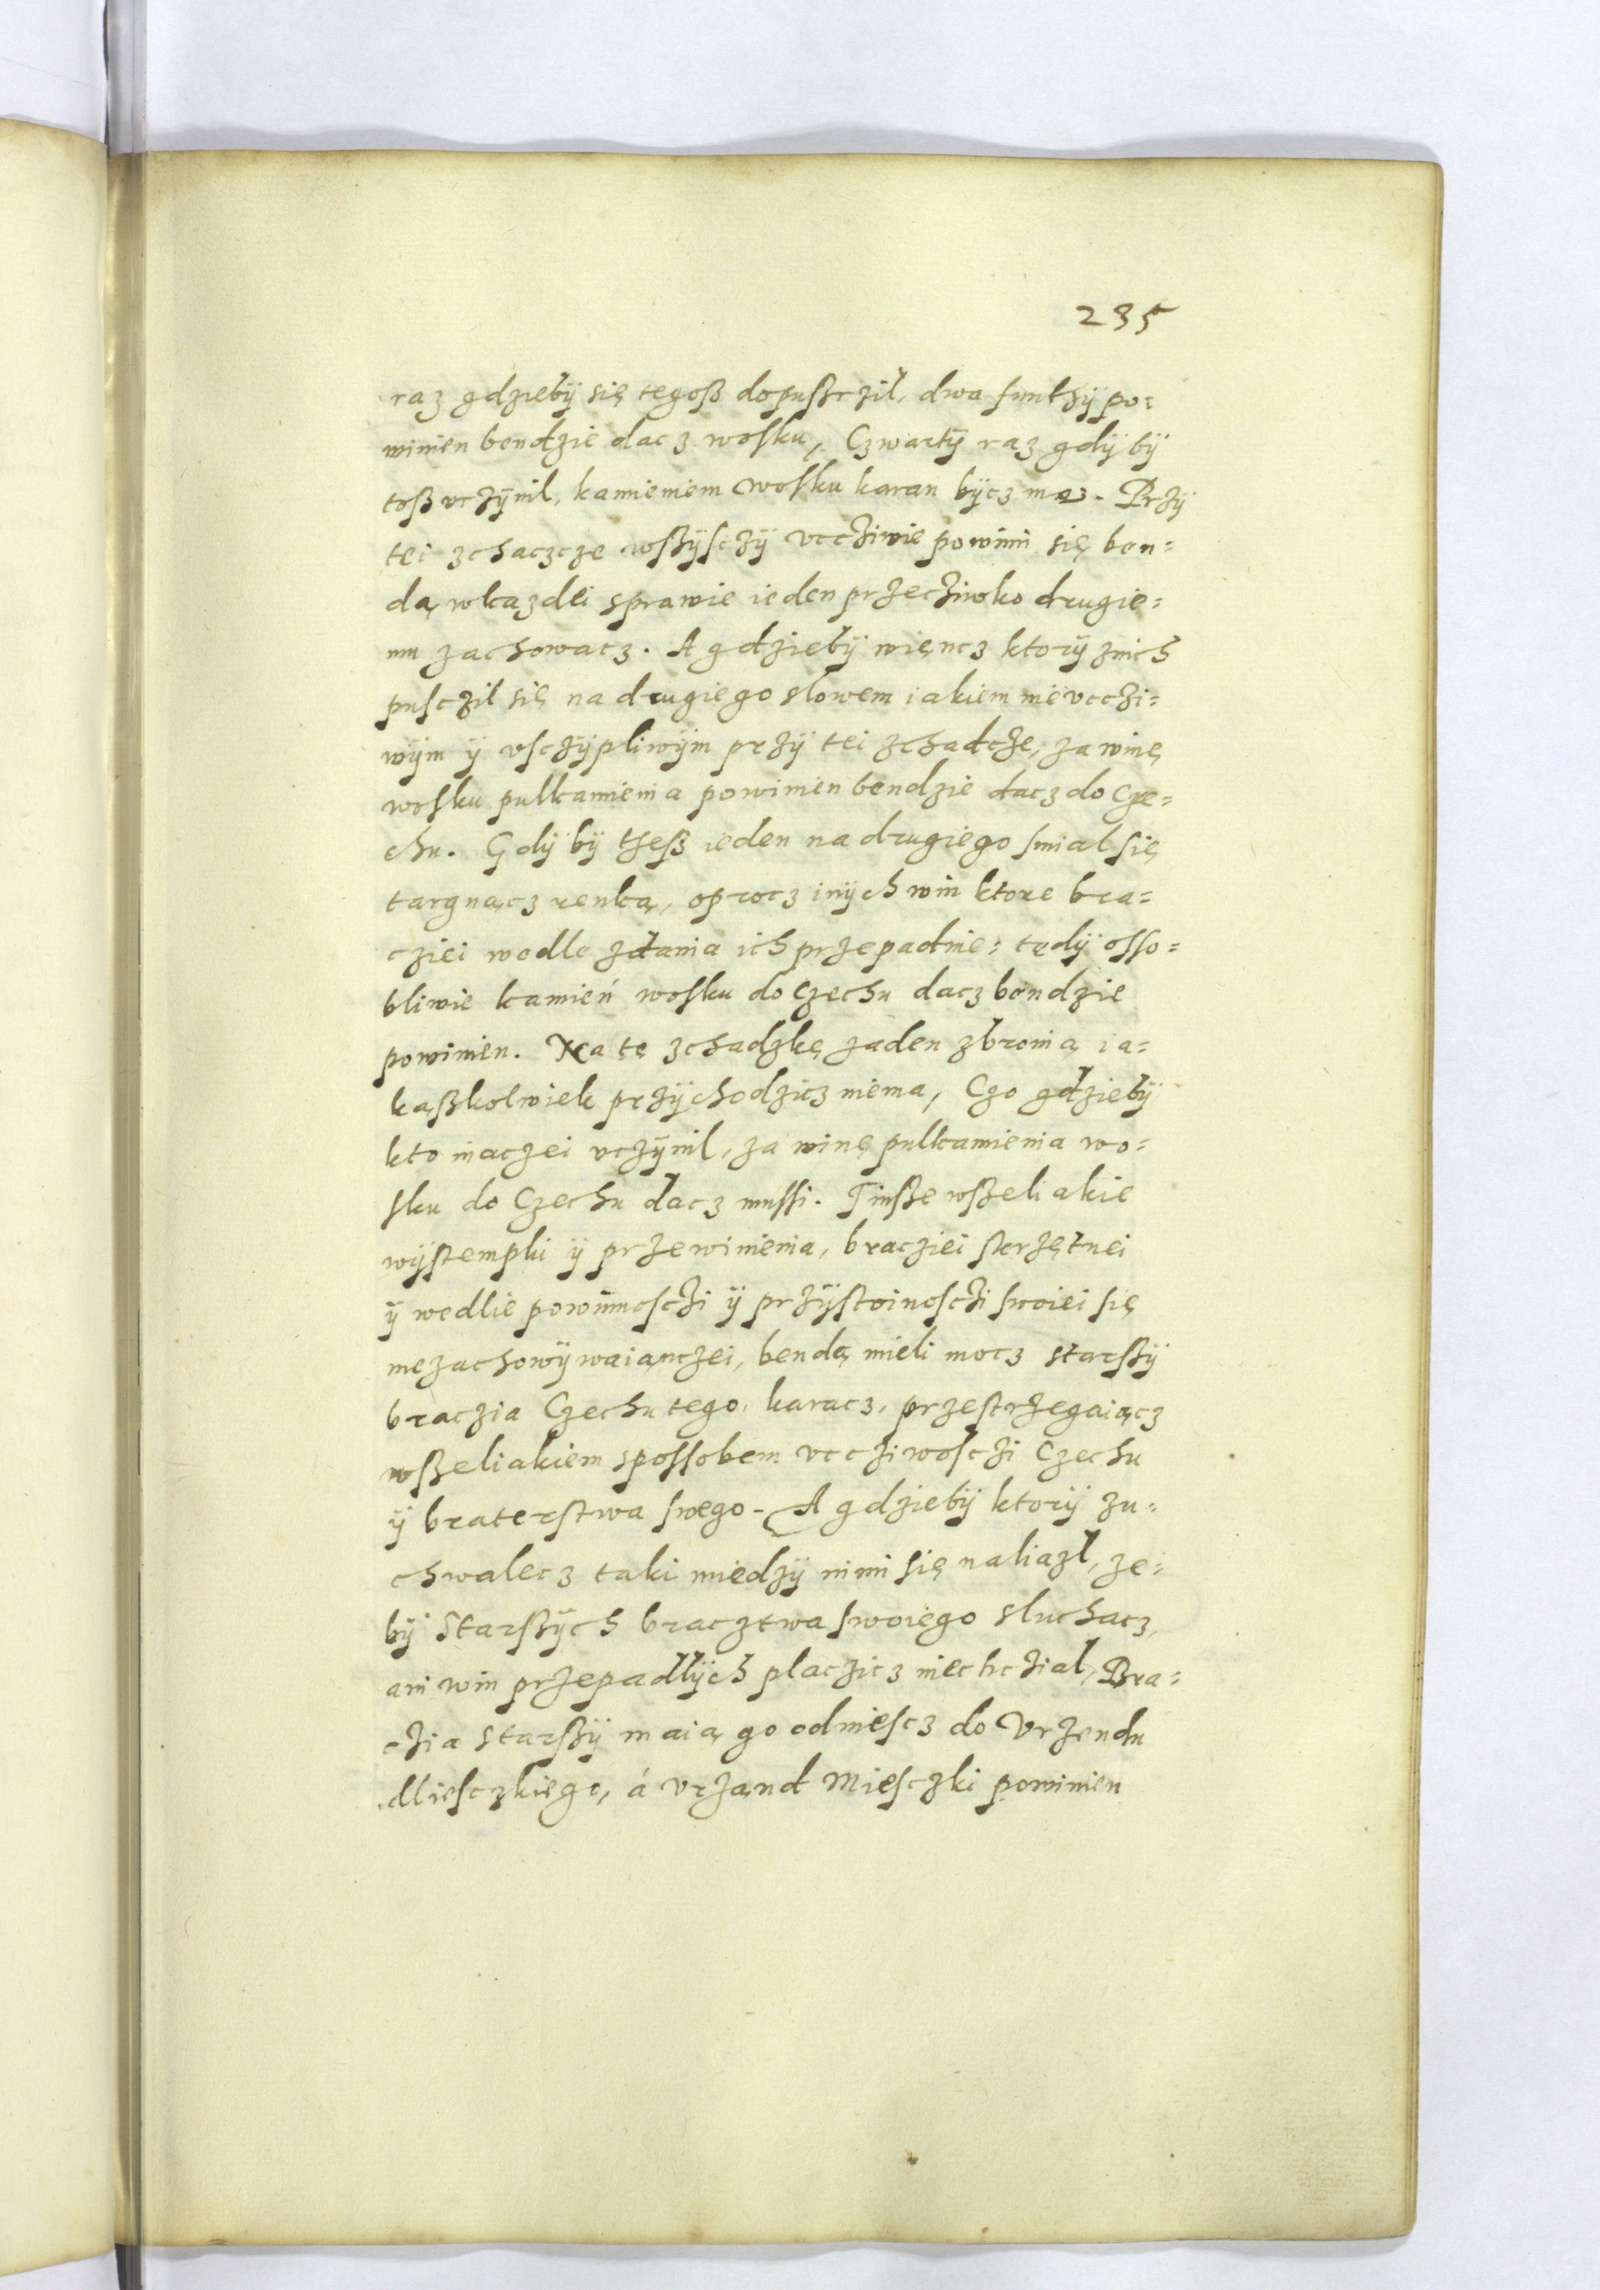 235
raz gdzieby się tegoß dopußczil, dwa funthÿ po=
winien bendzie dacz wosku, Czwartÿ raz gdÿ bÿ
toß vczÿnil, kamieniem wosku karan bÿcz ma. Przÿ
tei zchaczcze wßÿsczÿ vcczIwie powinni się ben=
dą wkazdei sprawie ieden przecziwko drugie=
mu zachowacz. A gdziebÿ więncz ktorÿ znich
pusczil się na drugiego slowem iakiem nievcczi=
wÿm ÿ vsczÿpliwÿm przÿ tei zchadcze, za winę
wosku pulkamienia powinien bendzie dacz do Cze=
chu. Gdÿ bÿ theß ieden na drugiego smial się
targnącz renką, oprocz inÿch win ktore bra=
cziei wedle zdania ich przepadnie: tedÿ osso=
bliwie kamień wosku do Czechu dacz bendzie
powinien. Na tę zchadzkę zaden zbronią ia=
kąßkolwiek przÿchodzicz niema, Czo gdziebÿ
kto inaczei vczÿnil, za winę pulkamienia wo=
sku do Czechu dacz mussi. I inße wßeliakie
wÿstempki ÿ przewinienia, bracziei skrzętnei
ÿ wedlie powinnosczi ÿ przÿstoinosczi swoiei się
niezachowÿwaiąnczei, bendą mieli mocz starßÿ
braczia Czechu tego, karacz, przestrzegaiącz
wßeliakiem spossobem vccziwosczi Czechu
ÿ braterstwa swego. A gdziebÿ ktorÿ zu=
chwalecz taki miedzÿ nimi się naliazl, ze=
bÿ Starßÿch bracztwa swoiego sluchacz,
ani win przepadlÿch placzicz niechczial, Bra=
czia starßÿ maią go odniescz do Vrzendu
Miesczkiego, á Vrząnd Miesczki powinien